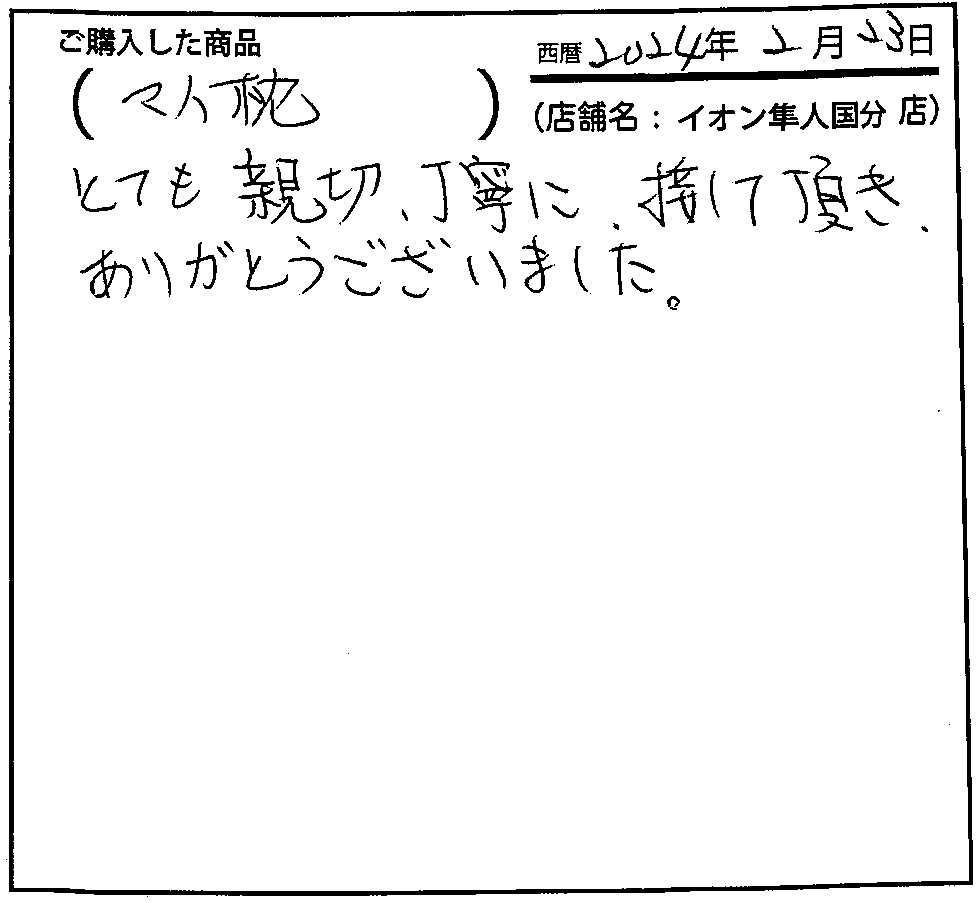 ご購入した商品
西暦 2024年 2月 23日
(マイ枕)
(店舗名：イオン隼人国分 店)
とても親切、丁寧に、接して頂き、
ありがとうございました。